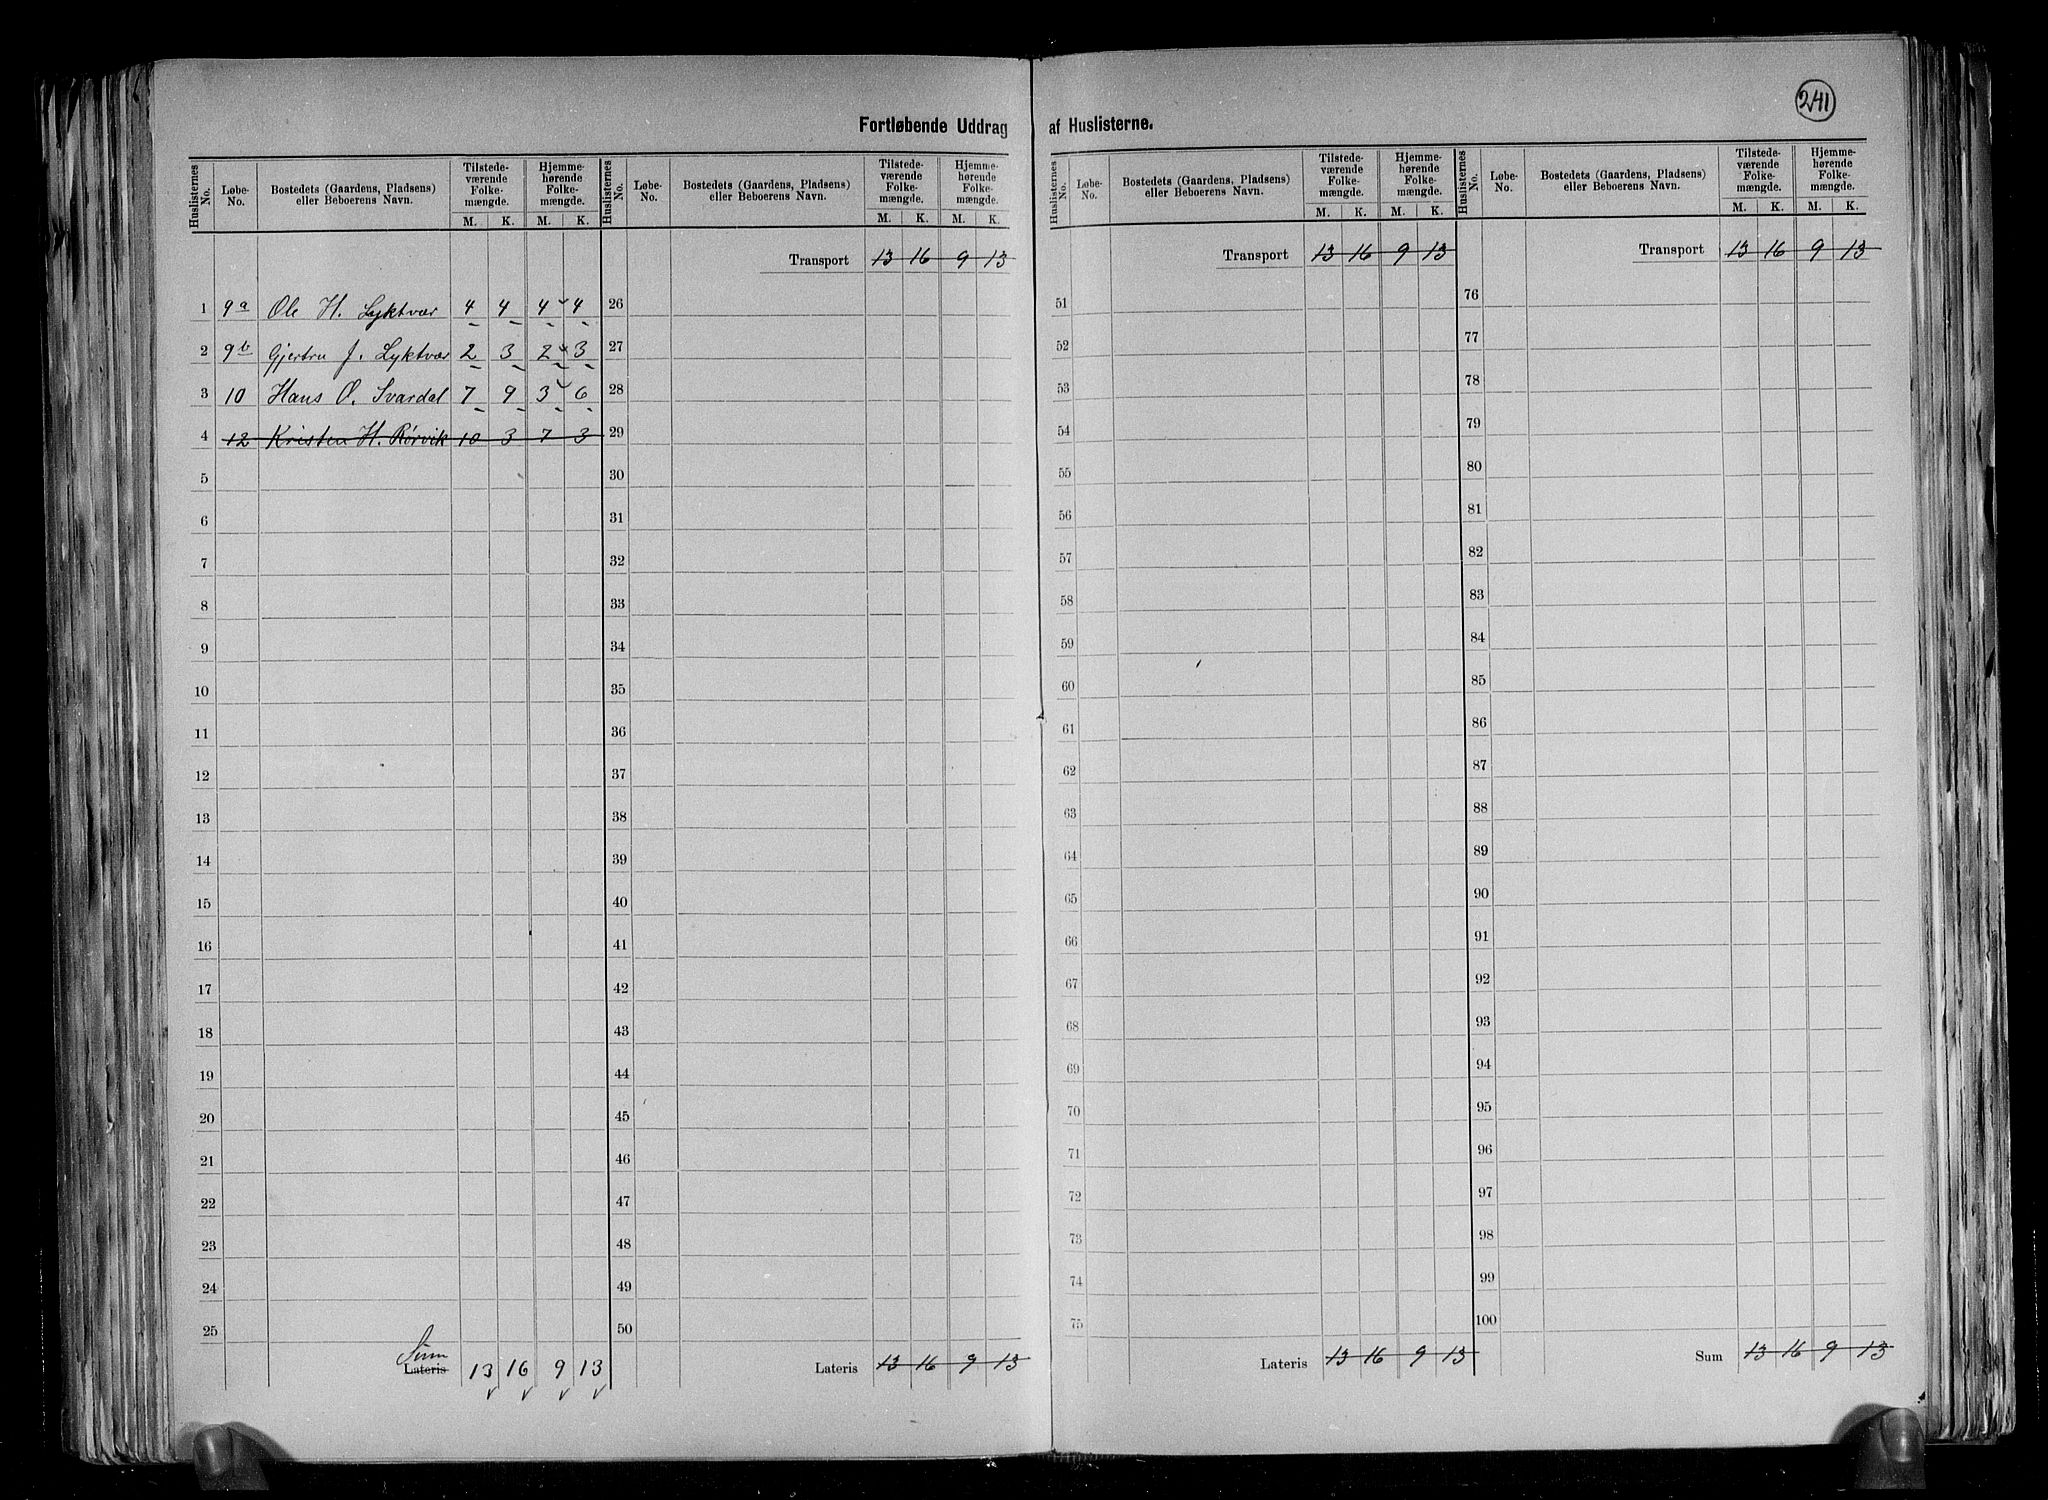 241
Fortløbende Uddrag af Huslisterne.
Huslisternes No. Løbe-No. Bostedets (Gaardens, Pladsens) eller Beboerens Navn. Tilstede-værende Folke-mængde. M. K. Hjemme-hørende Folke-mængde. M. K.
1 9a Ole H. Lyktvær 4 4 4 4
2 9b Gjertru J. Lyktvær 2 3 2 3
3 10 Hans O. Svardal 7 9 3 6
4 12 Kristen H. Rørvik 10 3 7 3
5
6
7
8
9
10
11
12
13
14
15
16
17
18
19
20
21
22
23
24
25
Sum
Lateris 13 16 9 13
Huslisternes No. Løbe-No. Bostedets (Gaardens, Pladsens) eller Beboerens Navn. Tilstede-værende Folke-mængde. M. K. Hjemme-hørende Folke-mængde. M. K.
Transport 13 16 9 13
26
27
28
29
30
31
32
33
34
35
36
37
38
39
40
41
42
43
44
45
46
47
48
49
50
Lateris 13 16 9 13
Huslisternes No. Løbe-No. Bostedets (Gaardens, Pladsens) eller Beboerens Navn. Tilstede-værende Folke-mængde. M. K. Hjemme-hørende Folke-mængde. M. K.
Transport 13 16 9 13
51
52
53
54
55
56
57
58
59
60
61
62
63
64
65
66
67
68
69
70
71
72
73
74
75
Lateris 13 16 9 13
Huslisternes No. Løbe-No. Bostedets (Gaardens, Pladsens) eller Beboerens Navn. Tilstede-værende Folke-mængde. M. K. Hjemme-hørende Folke-mængde. M. K.
Transport 13 16 9 13
76
77
78
79
80
81
82
83
84
85
86
87
88
89
90
91
92
93
94
95
96
97
98
99
100
Sum 13 16 9 13